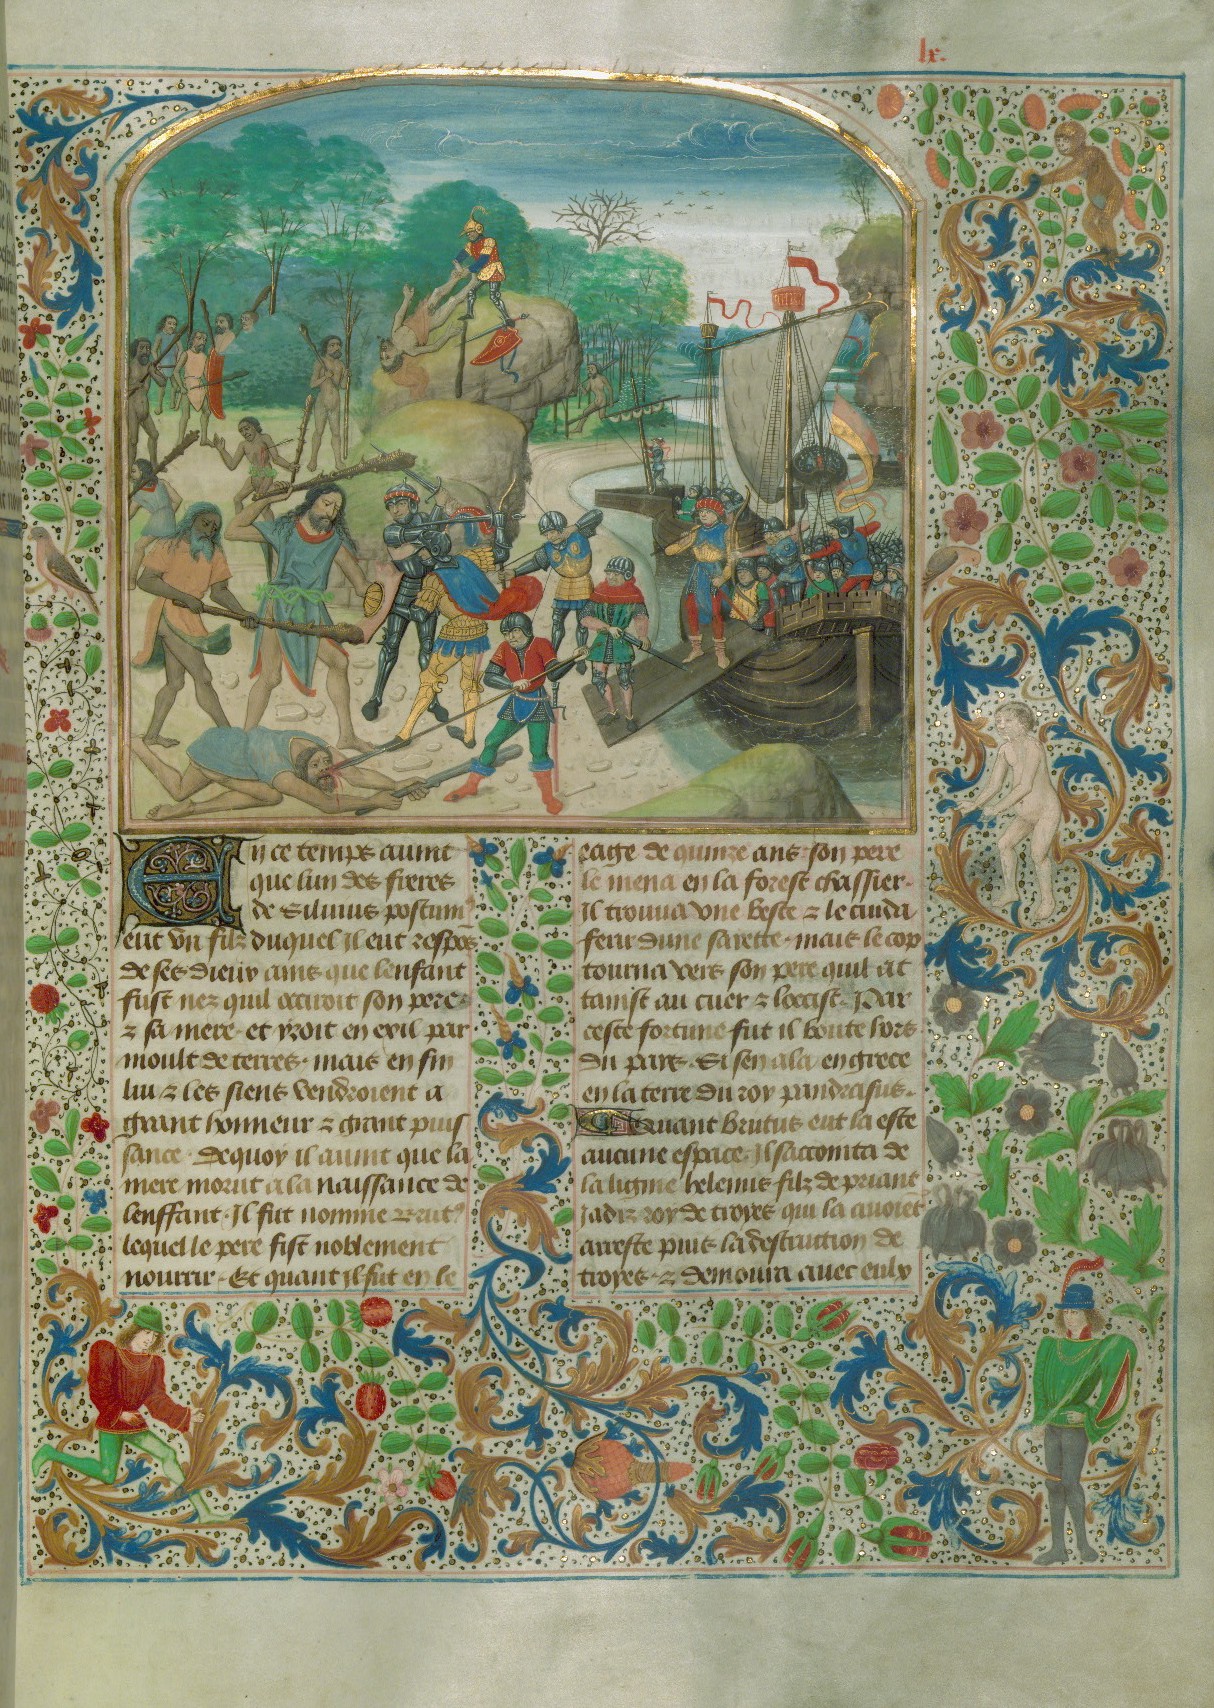 lx.
En ce temps auint
que lun des freres
de Siluius postum9
eut vn filz duquel il eut respõs
de ses dieux ains que lenfant
fust nez quil occiroit son pere
⁊ sa mere. et yroit en exil par
moult de terres. mais en fin
lui ⁊ les siens vendroient a
grant honneur ⁊ grant puis
sance. De quoy il auint que la
mere morut a la naissance de
lenffant. Il fut nomme Brut9
lequel le pere fist noblement
nourrir. Et quant il fut en le
eage de quinze ans son pere
le mena en la forest chassier.
Il trouua vne beste ⁊ le cuida
ferir dune saiette. mais le cop
tourna vers son pere quil at
taint au cuer ⁊ loccist. Par
ceste fortune fut il boute hors
du pays. Si sen ala en grece
en la terre du roy pandrasus.
Quant brutus eut la este
aucune espace. Il saccointa de
la lignie helenus filz de priant
jadiz roy de troyes qui la auoiẽt
arreste puis la destruction de
troyes. ⁊ demoura auec eulx